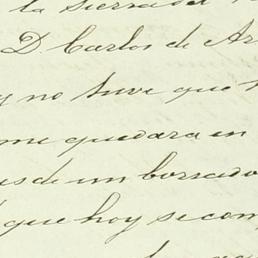 la sierra del
D Carlos de Ar
y no tuve que
me quedara en
es de un borrado
que hoy se com